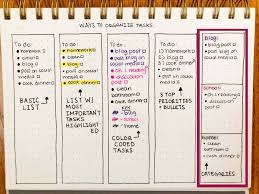 WAYS TO ORGANIZE TASKS
To do:
homework
clean
blog
post on social media
cook dinner
BASIC
LIST
To do:
homework
clean
blog
post on social media
cook dinner
LIST W/
MOST
IMPORTANT
TASKS
HIGHLIGHT-
ED
To do:
blog post
blog post
post on social
media
ch. 1 reading
discussion
post
clean
cook dinner
COLOR
CODED TASKS
To do:
homework
clean
blog
post on social
media
cook dinner
3 TOP
PRIORITIES
+ BULLETS
blog:
blog post
blog post
post on social
media
School:
ch. 1 reading
discussion
post
home:
clean
cook dinner
CATEGORIES